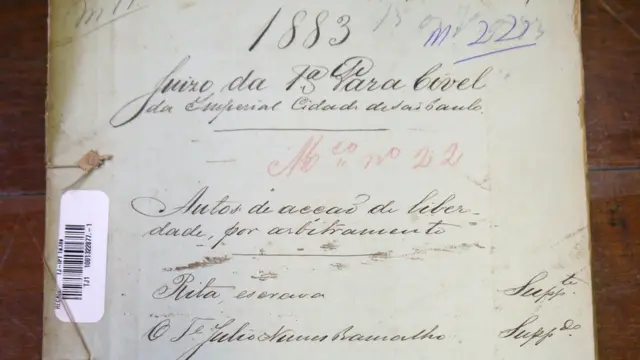 1883
Nº 223
Juizo da 1ª Vara Civel
da Imperial Cidade de São Paulo.
Mço nº 22
Autos de accão de liber-
dade, por arbitramento
Rita, escrava Suppte.
O Te. Julio Nunes Ramalho. Suppdo